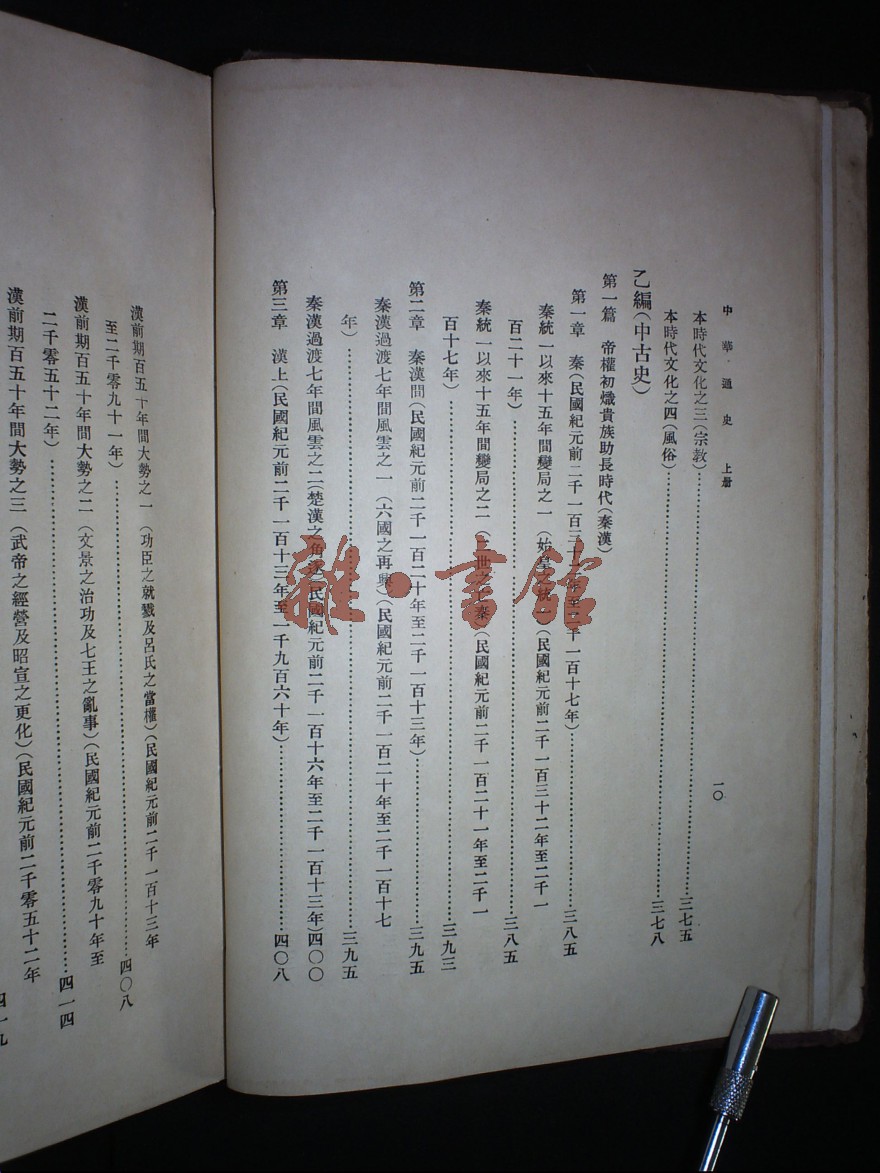 中華通史 上册
一〇
本時代文化之三(宗教)……三七五
本時代文化之四(風俗)……三七八
乙編(中古史)
第一篇 帝權初熾貴族助長時代(秦漢)
第一章 秦(民國紀元前二千一百三十二年至二千一百十七年)……三八五
秦統一以來十五年間變局之一(始皇之統一)(民國紀元前二千一百三十二年至二千一
百二十一年)……三八五
秦統一以來十五年間變局之二(二世之亡秦)(民國紀元前二千一百二十一年至二千一
百十七年)……三九三
第二章 秦漢間(民國紀元前二千一百二十年至二千一百十三年)……三九五
秦漢過渡七年間風雲之一(六國之再興)(民國紀元前二千一百二十年至二千一百十七
年)……三九五
秦漢過渡七年間風雲之二(楚漢之角逐)(民國紀元前二千一百十六年至二千一百十三年)四〇〇
第三章 漢上(民國紀元前二千一百十三年至一千九百六十年)……四〇八
漢前期百五十年間大勢之一(功臣之就戮及呂氏之當權)(民國紀元前二千一百十三年
至二千零九十一年)……四〇八
漢前期百五十年間大勢之二(文景之治功及七王之亂事)(民國紀元前二千零九十年至
二千零五十二年)……四一四
漢前期百五十年間大勢之三(武帝之經營及昭宣之更化)(民國紀元前二千零五十二年
四一九
雜·書館